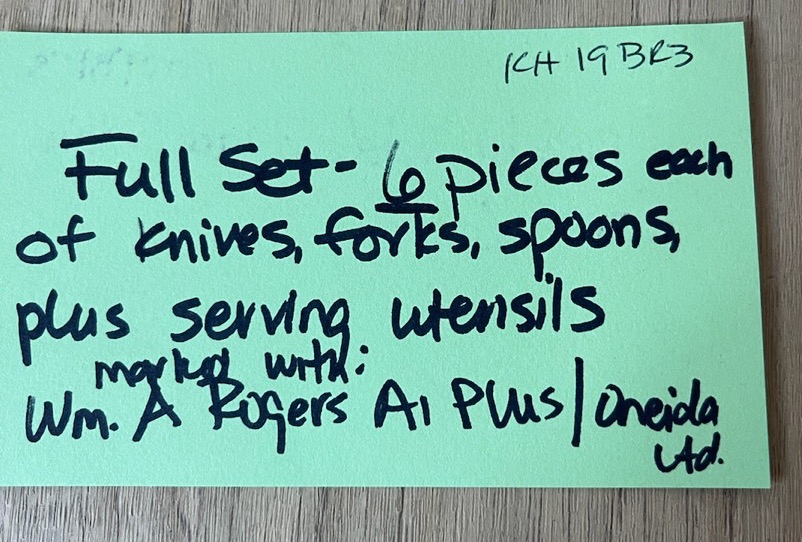 KH 19 BR3
Full Set- 6 pieces each
of knives, forks, spoons,
plus serving utensils
marked with:
Wm. A Rogers A1 Plus/Oneida
Ltd.